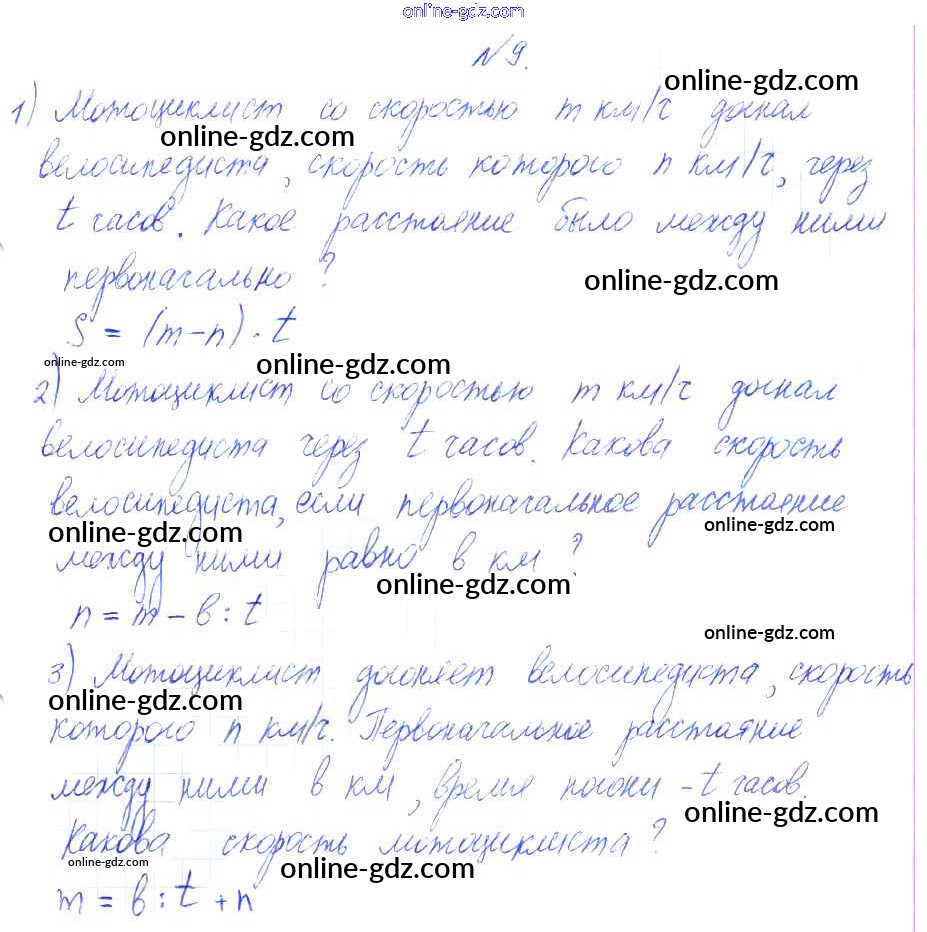 online-gdz.com
N 9.
online-gdz.com
1) Мотоциклист со скоростью m км/ч догнал
online-gdz.com
велосипедиста, скорость которого n км/ч, через
t часов. Какое расстояние было между ними
первоначально?
online-gdz.com
S = (m-n) · t
online-gdz.com
online-gdz.com
2) Мотоциклист со скоростью m км/ч догнал
велосипедиста через t часов. Какова скорость
велосипедиста, если первоначальное расстояние
online-gdz.com
online-gdz.com
между ними равно в км?
online-gdz.com
n = m - в : t
online-gdz.com
3) Мотоциклист догоняет велосипедиста, скорость
online-gdz.com
которого n км/ч. Первоначальное расстояние
между ними в км, время погони - t часов.
online-gdz.com
Какова скорость мотоциклиста?
online-gdz.com
online-gdz.com
m = в : t + n